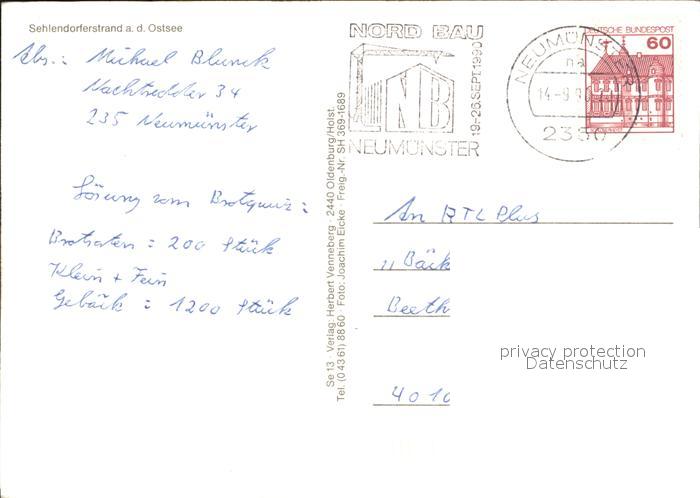 Sehlendorferstrand a. d. Ostsee
Abs.: Michael Blunck
Nachtredder 34
235 Neumünster
Lösung vom Brotquiz:
Brotsorten = 200 Stück
Klein + Fein
Gebäck = 1200 Stück
Se 13 · Verlag: Herbert Venneberg · 2440 Oldenburg/Holst.
Tel. (0 43 61) 88 60 · Foto: Joachim Eicke · Freig.-Nr. SH 369-1689
NORD BAU
NB
19.-26.SEPT.1990
NEUMÜNSTER
NEUMÜNSTER
na
14.-9.9
2350
DEUTSCHE BUNDESPOST
60
An RTL Plus
" Bäck
Beeth
4010
privacy protection
Datenschutz